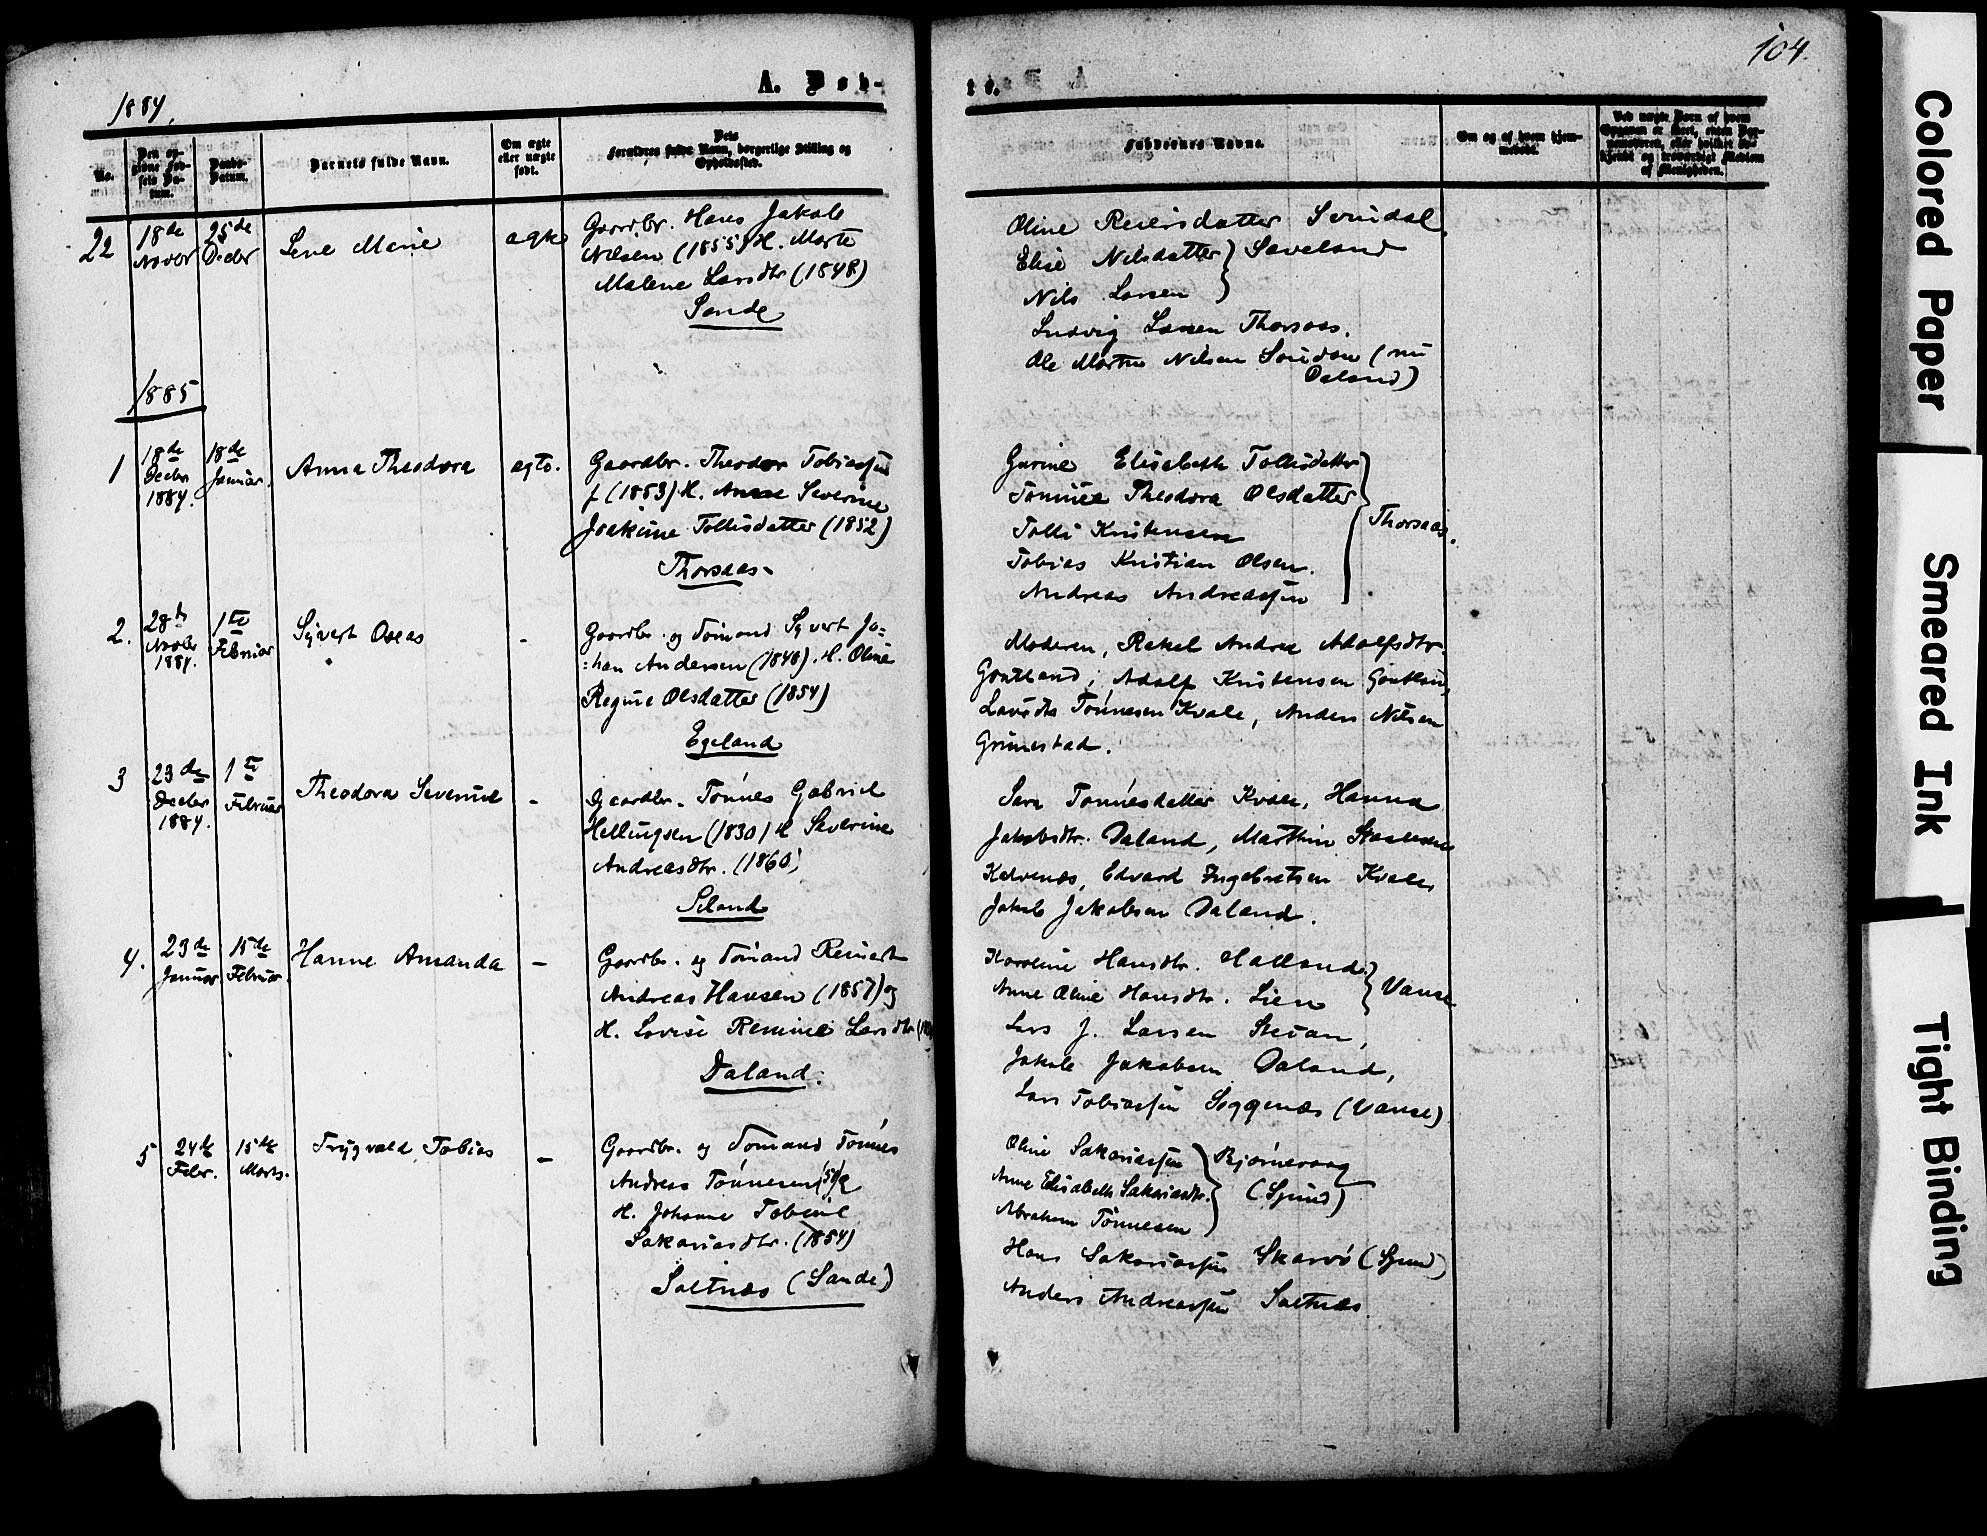 104.
1884.
A. Døb-
te.
No.
Den opgivne Fødsels Datum.
Daabs-Datum.
Barnets fulde Navn.
Om ægte eller uægte født.
Forældres fulde Navn, borgerlige Stilling og Opholdssted.
Faddernes Navne.
Om og af hvem hjemmedøbt.
22
18de Novbr
25de Decbr
Lene Marie
ægte
Gaardbr. Hans Jakob
Nilsen (1855) H. Marte
Malene Larsdtr (1848)
Sande
Oline Reiersdatter Svindal
Elise Nilsdatter } Seveland
Nils Larsen
Ludvig Larsen Thorsaas.
Ole Martin Nilsen (nu
Daland)
1885
1
18de Decbr 1884.
18de Januar.
Anna Theodora
ægte.
Gaardbr. Theodor Tobiassen
f (1853) H. Anne Severine
Joakime Tollisdatter (1852)
Thorsaas
Gurine Elisabeth Tollisdatter
Tomine Theodora Olsdatter
Tolli Kristensen } Thorsaas.
Tobias Kristian Olsen.
Andreas Andreassen
2.
28de Novbr 1884.
1ste Februar
Syvert Oseas
-
Gaardbr. og Sømand Syvert Jo=
=han Andersen (1848). H. Oline
Regine Olsdatter (1854)
Egeland
Moderen, Rakel Andrea Adolfsdtr.
Gautland, Adolf Kristensen
Lavrits Tønnesen Kvale, Anders Nilsen
Grimestad.
3
23de Decbr 1884.
1ste Februar
Theodora Severine
-
Gaardbr. Tønnes Gabriel
Hellingsen (1830) H Severine
Andreasdtr. (1860)
Seland
Sara Tønnesdatter Kvale, Hanna
Jakobsdtr. Daland, Marthin
Edvard Ingebretsen Kvale,
Jakob Jakobsen Daland.
4.
23de Januar
15de Februar
Hanne Amanda
-
Gaardbr. og Sømand Reinert
Andreas Hansen (1857) og
H. Lovise Remine Larsdtr
Daland.
Karoline Hansdtr. Halland } Vanse
Anne Oline Hansdtr. Lien
Lars J. Larsen
Jakob Jakobsen Daland,
Lars Tobiassen Seggenæs (Vanse)
5
24de Febr.
15de Marts.
Trygvald Tobias
-
Gaardbr. og Sømand Tønnes
Andreas Tønnesen
H. Johanne Tobine
Sakariasdtr. (1854)
Saltnæs (Sande)
Oline Sakariassen } Bjørnevaag
Anne Elisabeth Sakariasdtr. (Spind)
Abraham Tønnesen
Hans Sakariassen Skarvø (Spind)
Anders Andreassen Saltnæs.
Colored Paper
Smeared Ink
Tight Binding